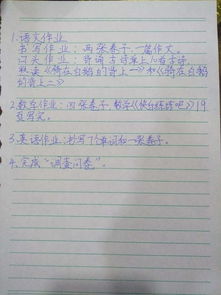 1.语文作业
书写作业：两张卷子,一篇作文。
口头作业：背诵古诗单上10首古诗
《骑在白鹅的背上一》和《骑在白鹅
的背上二》
2.数学作业：四张卷子,数学《快乐练练吧》19
页写完。
3.英语作业:书写 单词和一张卷子。
4.完成“调查问卷”。